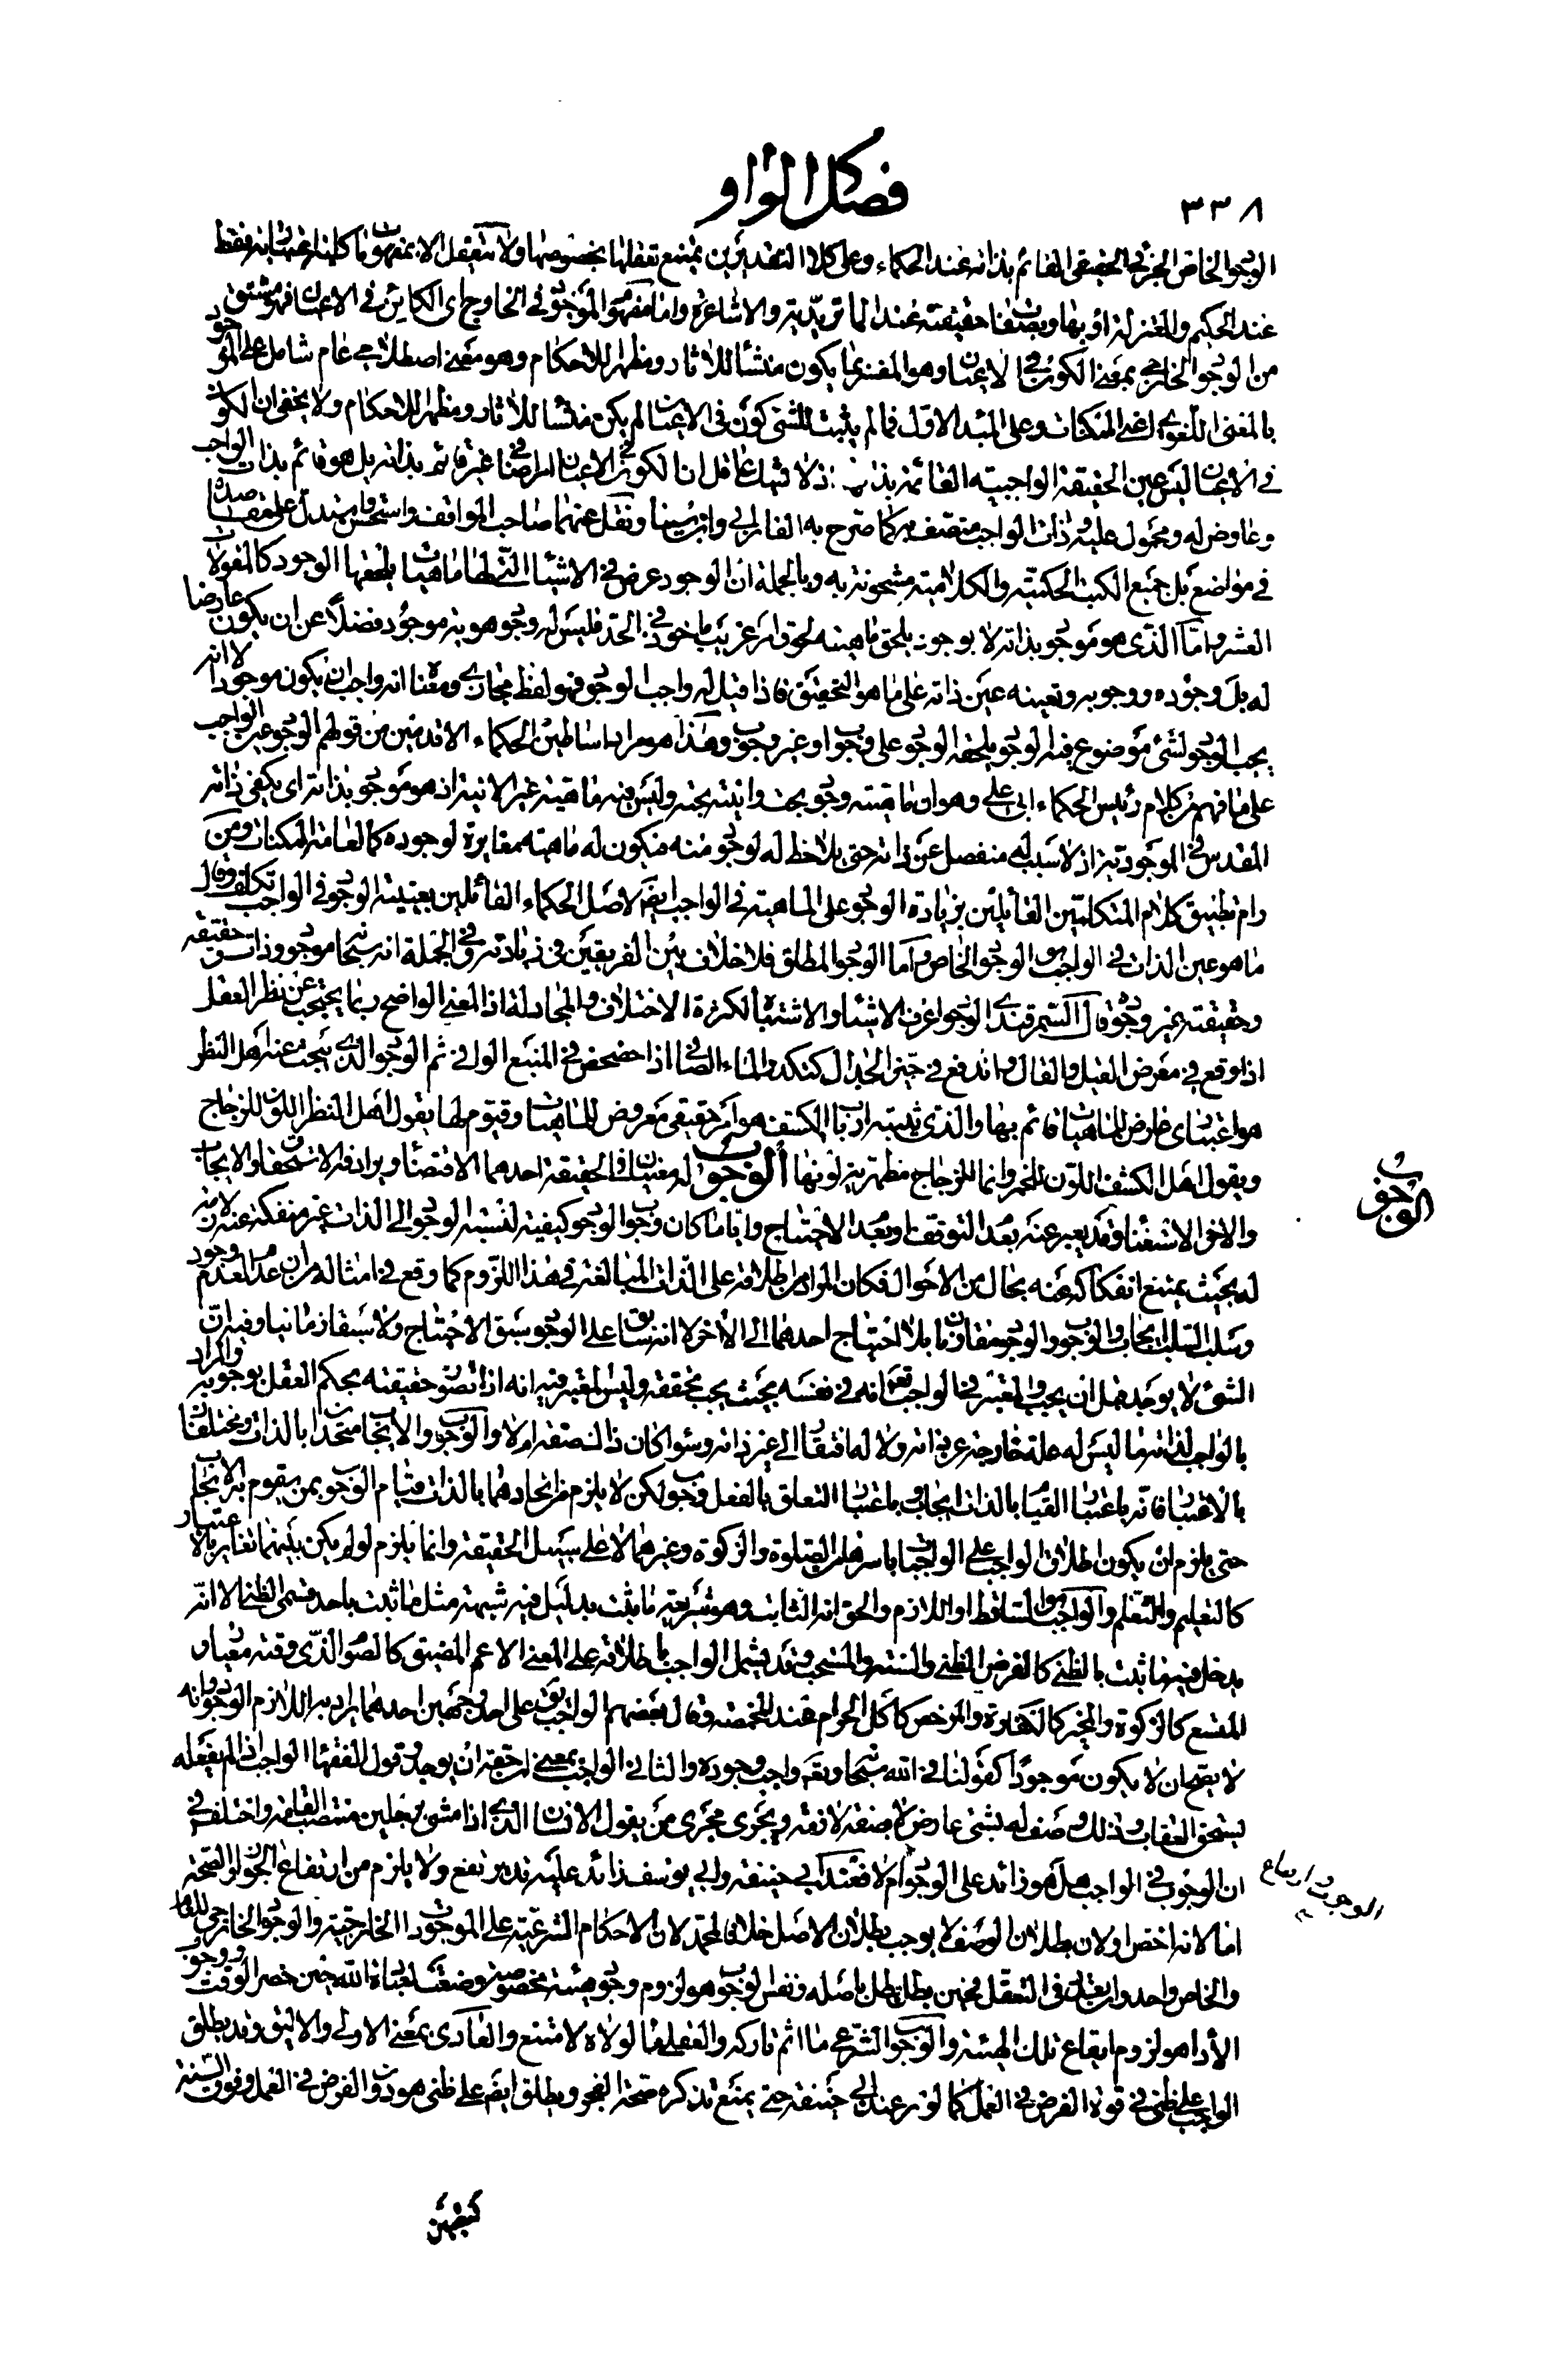 ٣٣٨
فصل الواو
الوجود الخاص الجزئي الحقيقي القائم بذاته عند الحكماء وعلى كلا التقديرين يمتنع تعقلها بخصوصها ولا تتعقل الا بمفهومات كلية اعتبارية فقط
عند الحكيم والمعتزلة او بها وبصفات حقيقته عند الماتريدية والاشاعرة واما مفهوم الموجود في الخارج اي الكائن في الاعيان فهو مشتق
من الوجود الخارجي بمعنى الكون في الاعيان وهو المفسر بما يكون منشأ للاثار ومظهر للاحكام وهو معنى اصطلاحي عام شامل على الموجود
بالمعنى اللغوي اعني الممكنات وعلى المبدء الاول فما لم يثبت للشئ كون في الاعيان لم يكن منشأ للاثار ومظهر للاحكام ولا يخفى ان الكون
في الاعيان ليس عين الحقيقة الواجبية القائمة بذاته اذ لا شك عاقل ان الكون في الاعيان امر اضافي غير قائم بذاته بل هو قائم بذات الواجب
وعارض له ومحمول عليه وذات الواجب متصف به كما صرح به الفارابي وابن سينا ونقل عنهما صاحب المواقف واستحسن مستدل على مقاصده
في مواضع بل جميع الكتب الحكمية والكلامية مشحونة به وبالجملة ان الوجود عرض في الاشياء التي لها ماهيات يلحقها الوجود كالمقولات
العشر واما الذي هو موجود بذاته لا بوجود يلحق ماهيته لحوق امر غريب ماخوذ في الحد فليس له وجود هو به موجود فضلا عن ان يكون عارضا
له بل وجوده ووجوبه وتعينه عين ذاته على ما هو التحقيق فاذا قيل له واجب الوجود فهو لفظ مجازي ومعناه انه واجب ان يكون موجودا لا انه
يجب الوجود لشئ موضوع فيه الوجود يلحقه الوجود على وجوب او غير وجوب وهذا هو مراد اساطين الحكماء الاقدمين من قولهم الوجود عين الواجب
على ما فهم من كلام رئيس الحكماء ابي علي وهو ان ماهيته وجود بحت وانيته بحته وليس فيه ماهية غير الانية اذ هو موجود بذاته اي يكفي ذاته
المقدس في الموجودية اذ لا سبب له منفصل عن ذاته حتى يلاحظ له لوجود منه فيكون له ماهيته مغايرة لوجوده كما لعامة الممكنات ومن
رام تطبيق كلام المتكلمين القائلين بزيادة الوجود على الماهية في الواجب ايضا لاصل الحكماء القائلين بعينية الوجود في الواجب تكلف وقال
ما هو عين الذات في الواجب هو الوجود الخاص واما الوجود المطلق فلا خلاف بين الفريقين في زيادته وفي الجملة انه سبحانه موجود وذاته حقيقة
وحقيقته غير وجوده قال السمرقندي الوجود اعرف الاشياء والاشتباه لكثرة الاختلاف والمجادلة اذ المعنى الواضح ربما يحتجب عن نظر العقل
اذا وقع في معرض القيل والقال واندفع في حيز الجدال كتكدر الماء الصافي اذا خضخض في المنبع الوافي ثم الوجود الذي يبحث عنه اهل النظر
هو اعتباري عارض للماهيات قائم بها والذي يثبته ارباب الكشف هو امر حقيقي معروض للماهيات وقيوم لها يقول اهل النظر اللون للزجاج
ويقول اهل الكشف اللون للخمر وانما للزجاج مظهرية لونها الوجوب له معنيان في الحقيقة احدهما الاقتضاء ويرادفه الاستحقاق والايجاب
والاخر الاستغناء وقد يعبر عنه بعدم التوقف او بعدم الاحتياج وايا ما كان وجوب الوجود كيفية لنسبة الوجود الى الذات غير منفكة عنه لازمة
له بحيث يمتنع انفكاكه عنه بحال من الاحوال فكان المراد من اطلاقه على الذات المبالغة في هذا اللزوم كما وقع في امثاله من ان عدم العدم وجود
وسلب السلب ايجاب والوجوب والوجود متقارنان بلا احتياج احدهما الى الاخر لا انه سابق على الوجود سبق الاحتياج ولا سبقا زمانيا وفيه ان
الشئ لا يوجد قبل ان يجب والمعتبر في الواجب تعالى انه في نفسه بحيث يجب تحققه وليس المعتبر فيه انه اذا تصور حقيقته يحكم العقل بوجوبه والمراد
بالواجب لذاته ما ليس له علة خارجة عن ذاته ولا له افتقار الى غير ذاته وسواء كان ذلك صفة ام لا والوجوب والايجاب متحدان بالذات ومختلفان
بالاعتبار فانه باعتبار القيام بالذات ايجاب وباعتبار التعلق بالفعل وجوب لكن لا يلزم من اتحادهما بالذات قيام الوجوب بمن يقوم به الايجاب
حتى يلزم ان يكون اطلاق الواجب على الواجبات باسرها من الصلوة والزكوة وغيرهما لا على سبيل الحقيقة وانما يلزم لو لم يكن بينهما تغاير بالاعتبار
كالتعليم والتعلم والواجب هو الساقط او اللازم والحق انه الثابت وهو شريعة ما يثبت بدليل فيه شبهة مثل ما ثبت باحد قسمي الظني الا انه
يدخل فيه ما ثبت بالظني كالفرض الظني والسنة والمستحب وقد يشمل الواجب باطلاقه على المعنى الاعم المضيق كالصوم الذي وقته معيار
الموسع كالزكوة والمخير كالكفارة والمرخص كاكل الحرام عند المخمصة وقال بعضهم الواجب يقال على احد وجهين احدهما يراد به اللازم الوجود وانه
لا يصح ان لا يكون موجودا كقولنا في الله سبحانه وتعالى واجب وجوده والثاني الواجب بمعنى ان حقه ان يوجد وقول الفقهاء الواجب اذا لم يفعله
يستحق العقاب وذلك وصف له بشئ عارض لا بصفة لازمة ويجري مجرى من يقول الانسان الذي اذا مشى برجلين منتصب القامة واختلف في
ان الوجوب في الواجب هل هو زائد على الوجود ام لا فعند ابي حنيفة وابي يوسف زائد عليه قد يرتفع ولا يلزم من ارتفاعه الجواز والصحة
اما لانه اخص او لان بطلان الوصف لا يوجب بطلان الاصل خلافا لمحمد لان الاحكام الشرعية على الموجودات الخارجية والوجود الخارجي للعام
والخاص واحد وان تعددا في التعقل فحين بطل بطل باصله ونفس الوجوب هو لزوم وجود هيئة مخصوصة وضعت لعبادة الله حين حضر الوقت ووجوب
الأداء هو لزوم ايقاع تلك الهيئة والوجوب الشرعي ما اثم تاركه والعقلي ما لولاه لامتنع والعادي بمعنى الاولى والاليق وقد يطلق
الواجب على ظني في قوة الفرض في العمل كالوتر عند ابي حنيفة حتى يمنع تذكره صحة الفجر ويطلق ايضا على ظني هو دون الفرض في العمل وفوق السنة
الوجوب
كتعيين